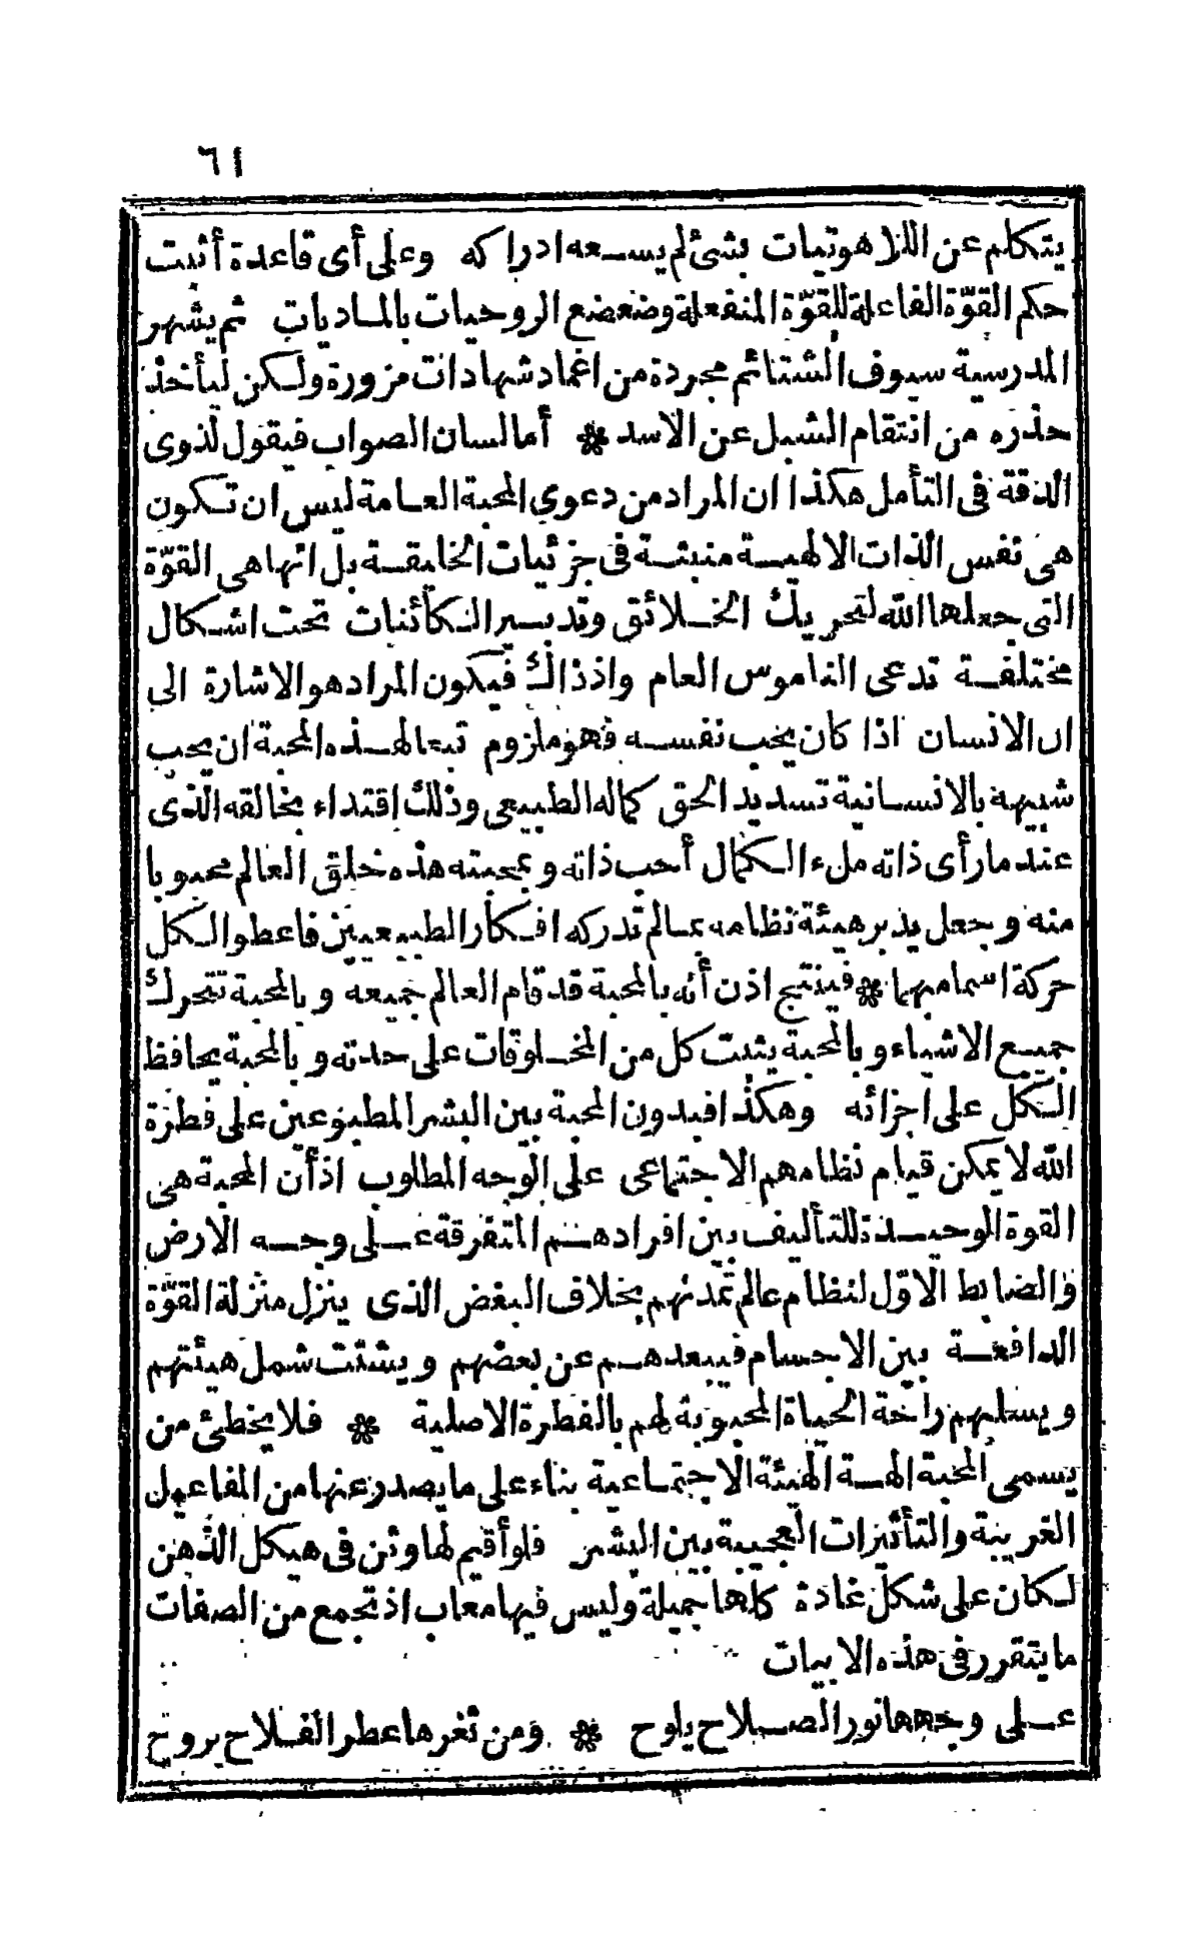 ٦١
يتكلم عن اللاهوتيات بشئ لم يسعه ادراكه وعلى أى قاعدة أثبت
حكم القوّة الفاعلة للقوّة المنفعلة وضعضع الروحيات بالماديات ثم يشهر
المدرسية سيوف الشتائم مجردة من اغماد شهادات مزورة ولكن ليأخذ
حذره من انتقام الشبل عن الاسد * أما لسان الصواب فيقول لذوى
الدقة فى التأمل هكذا ان المراد من دعوى المحبة العامة ليس ان تكون
هى نفس الذات الالهية منبثة فى جزئيات الخليقة بل انها هى القوّة
التى جعلها الله لتحريك الخلائق وتدبير الكائنات تحت اشكال
مختلفة تدعى الناموس العام واذ ذاك فيكون المراد هو الاشارة الى
ان الانسان اذا كان يحب نفسه فهو ملزوم تبعا لهذه المحبة ان يحب
شبيهه بالانسانية تسديد الحق كماله الطبيعى وذلك اقتداء بخالقه الذى
عند ما رأى ذاته ملء الكمال أحب ذاته وبمحبته هذه خلق العالم محبوبا
منه وجعل يدبر هيئة نظامه بما لم تدركه افكار الطبيعيين فاعطوا لكل
حركة اسما مبهما * فينتج اذن أنه بالمحبة قد قام العالم جميعه وبالمحبة تتحرك
جميع الاشياء وبالمحبة يثبت كل من المخلوقات على حدته وبالمحبة يحافظ
الكل على اجزائه وهكذا فبدون المحبة بين البشر المطبوعين على فطرة
الله لا يمكن قيام نظامهم الاجتماعى على الوجه المطلوب اذ أن المحبة هى
القوة الوحيدة للتأليف بين افرادهم المتفرقة على وجه الارض
والضابط الاوّل لنظام عالم تمدنهم بخلاف البغض الذى ينزل منزلة القوّة
الدافعة بين الاجسام فيبعدهم عن بعضهم ويشتت شمل هيئتهم
ويسلبهم راحة الحياة المحبوبة لهم بالفطرة الاصلية * فلا يخطئ من
يسمى المحبة الهة الهيئة الاجتماعية بناء على ما يصدر عنها من المفاعيل
الغريبة والتأثيرات العجيبة بين البشر فلو أقيم لها وثن فى هيكل الذهن
لكان على شكل غادة كلها جميلة وليس فيها معاب اذ تجمع من الصفات
ما يتقرر فى هذه الابيات
على وجهها نور الصلاح يلوح * ومن ثغرها عطر الفلاح يروح